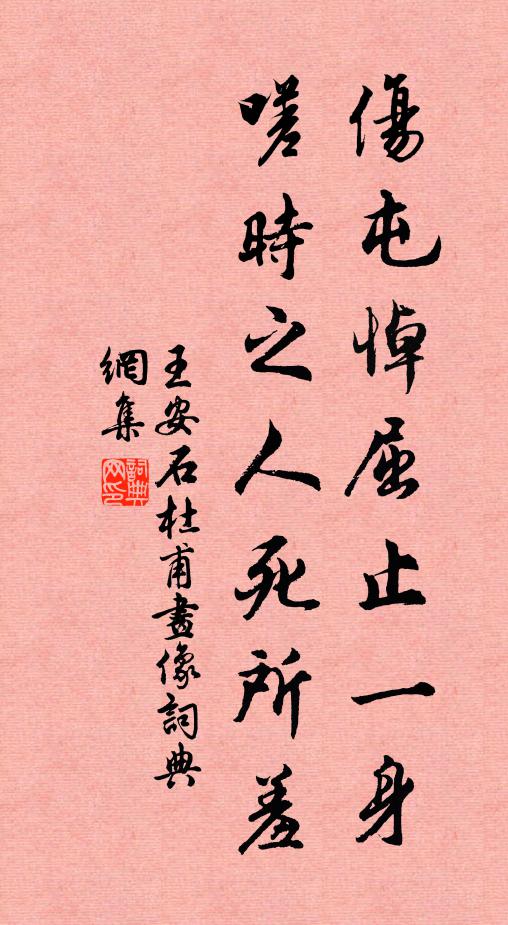 傷屯悼屈止一身
嗟時之人死所羞
王安石杜甫畫像詞典
網集
詞典網印